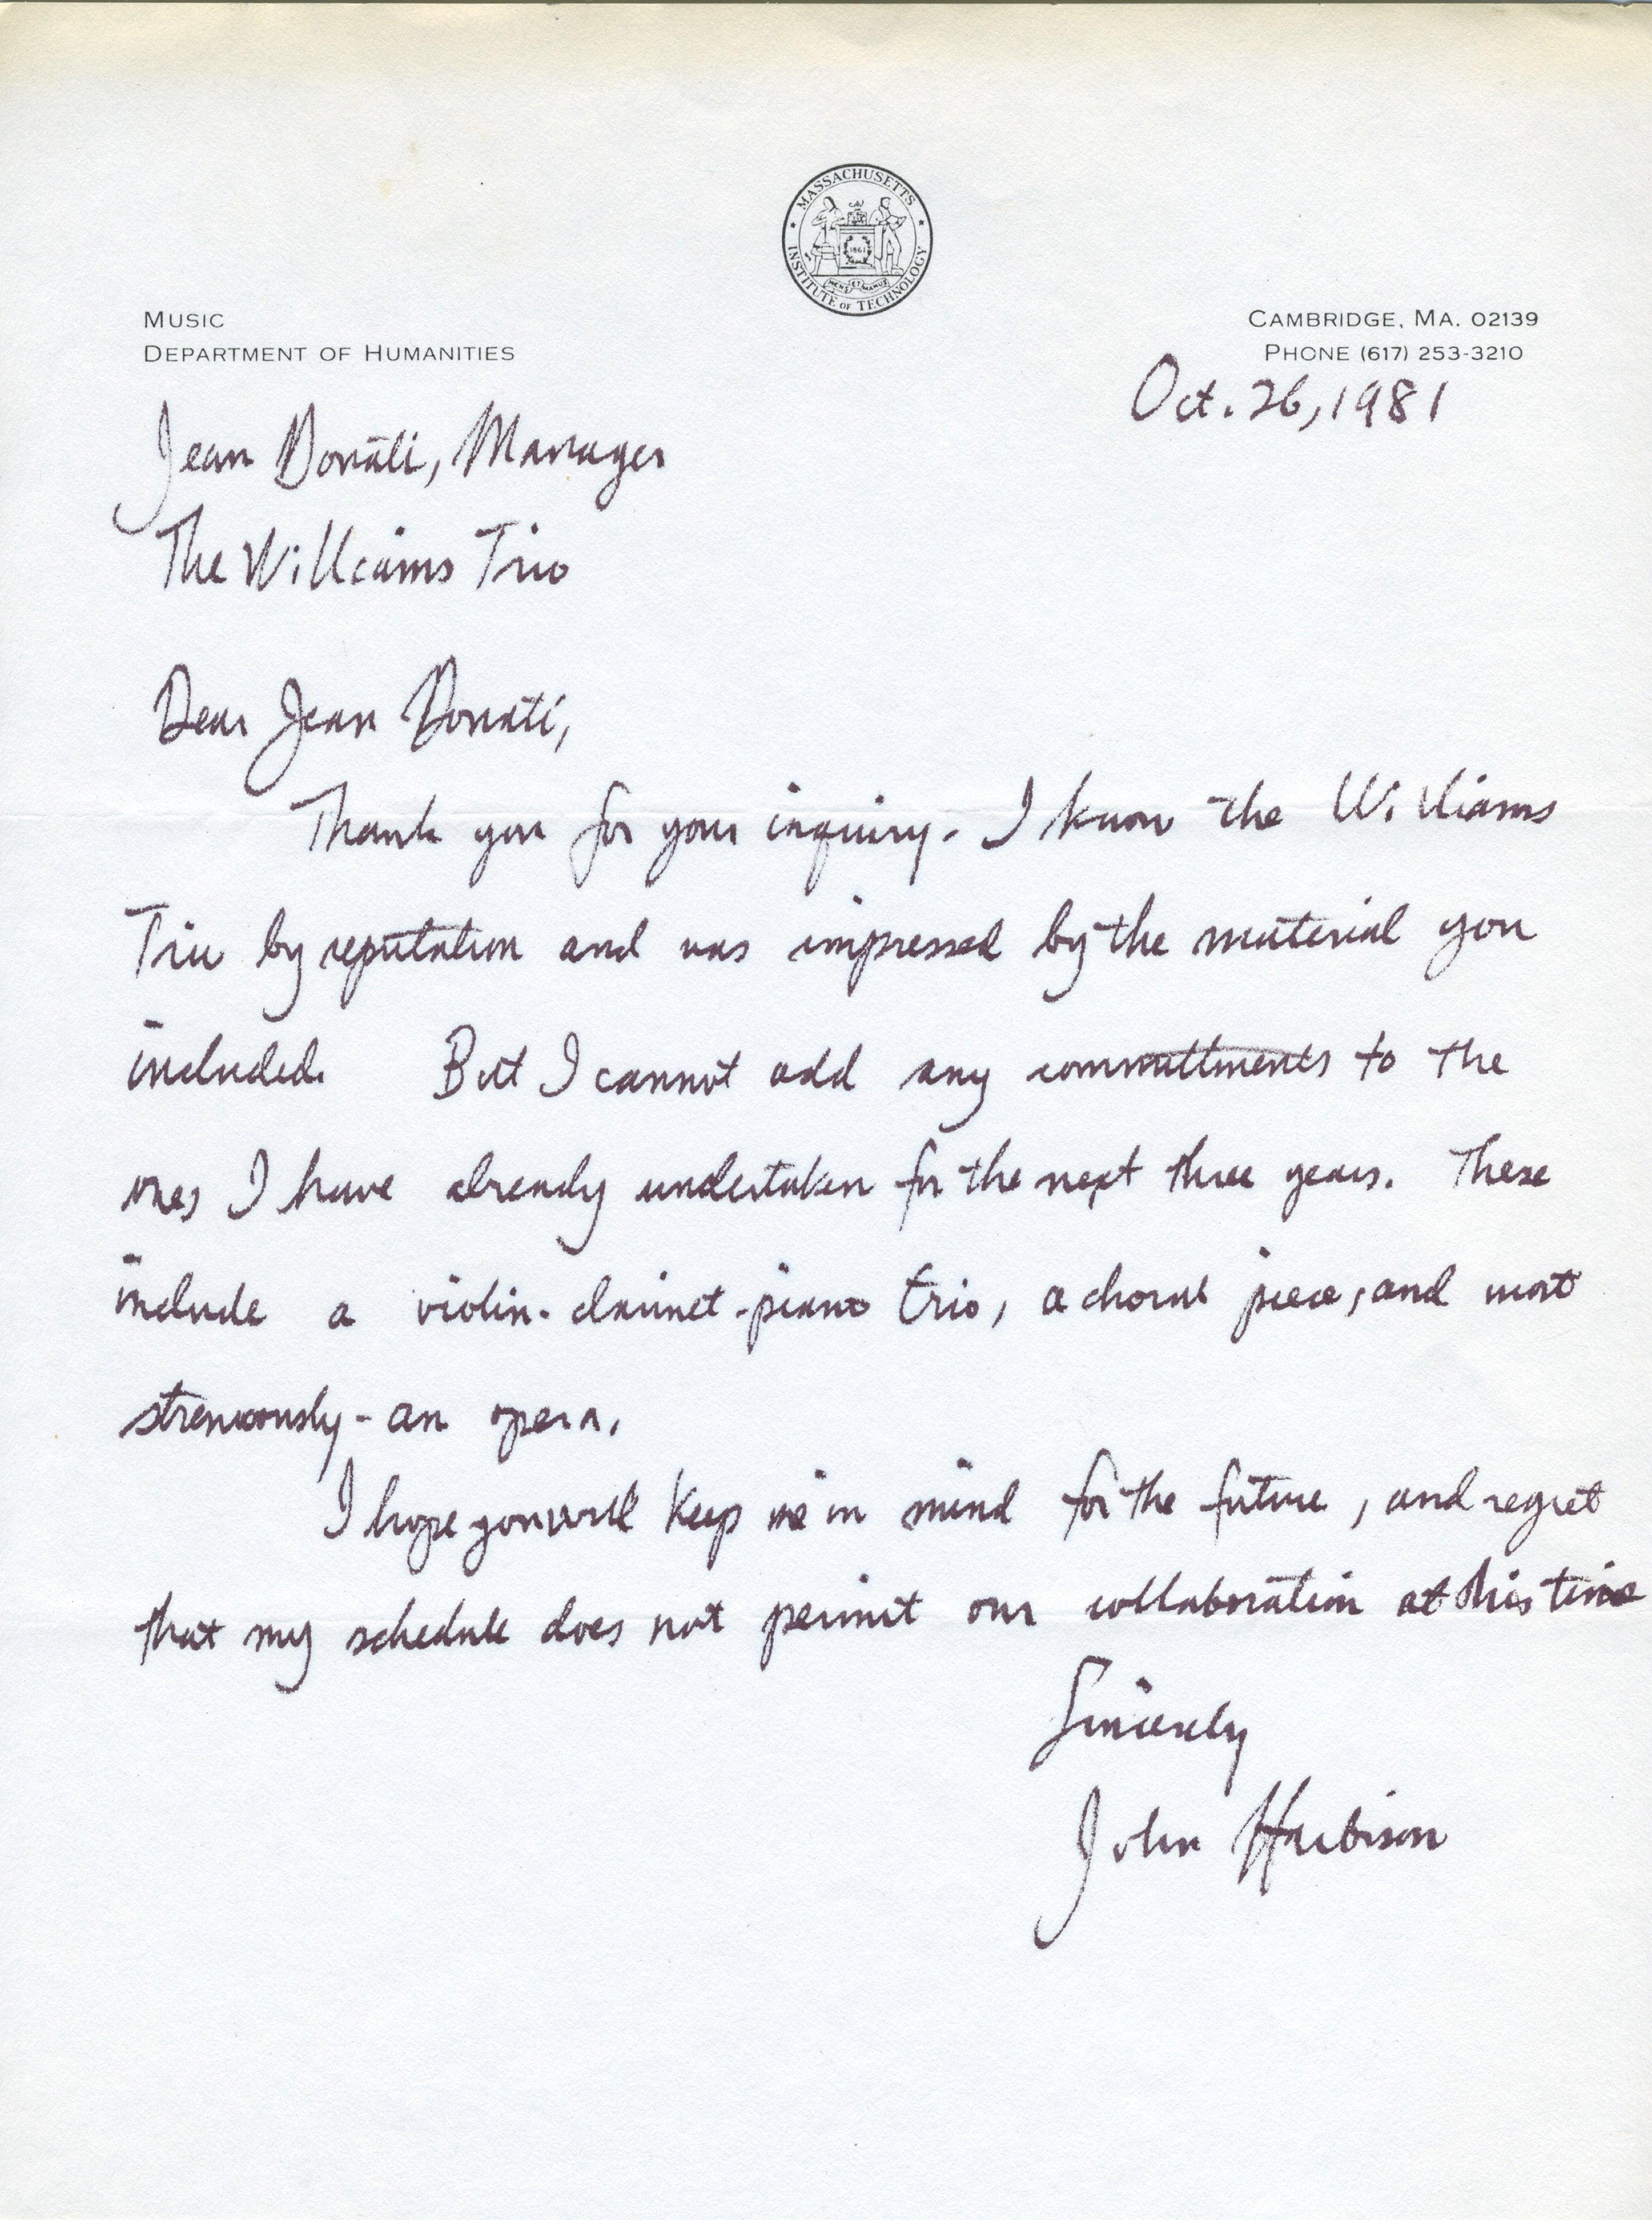 MASSACHUSETTS
INSTITUTE OF TECHNOLOGY
1861
MENS ET MANUS
MUSIC
DEPARTMENT OF HUMANITIES
CAMBRIDGE, MA. 02139
PHONE (617) 253-3210
Oct. 26, 1981
Jean Donati, Manager
The Williams Trio
Dear Jean Donati,
Thank you for your inquiry. I know the Williams
Trio by reputation and was impressed by the material you
included. But I cannot add any committments to the
ones I have already undertaken for the next three years. These
include a violin-clarinet-piano trio, a choral piece, and most
strenuously - an opera.
I hope you will keep me in mind for the future, and regret
that my schedule does not permit our collaboration at this time
Sincerely
John Harbison